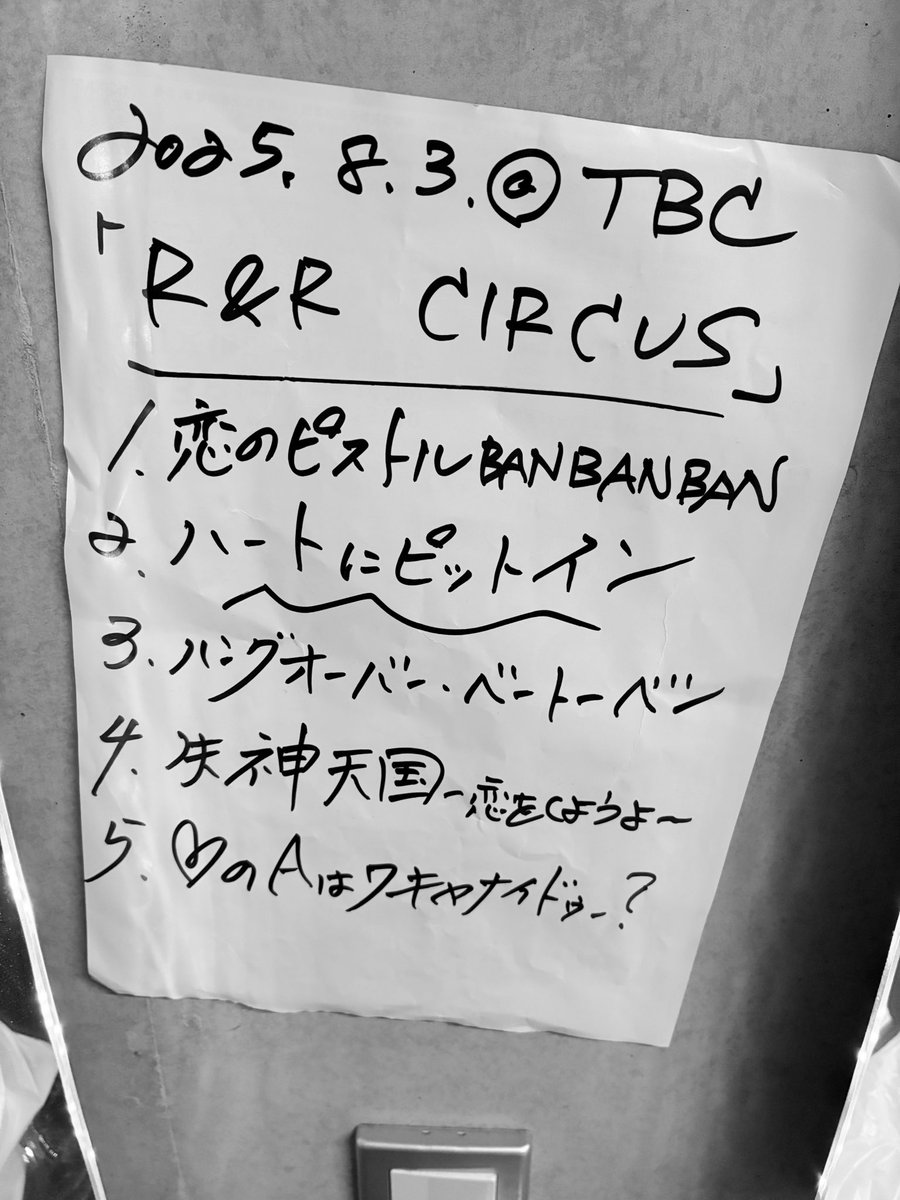 2025.8.3.@TBC
「R&R CIRCUS」
1.恋のピストルBANBANBAN
2.ハートにピットイン
3.ハングオーバー・ベートーベン
4.失神天国~恋をしようよ~
5.♡のAはワーキャナイドゥー?